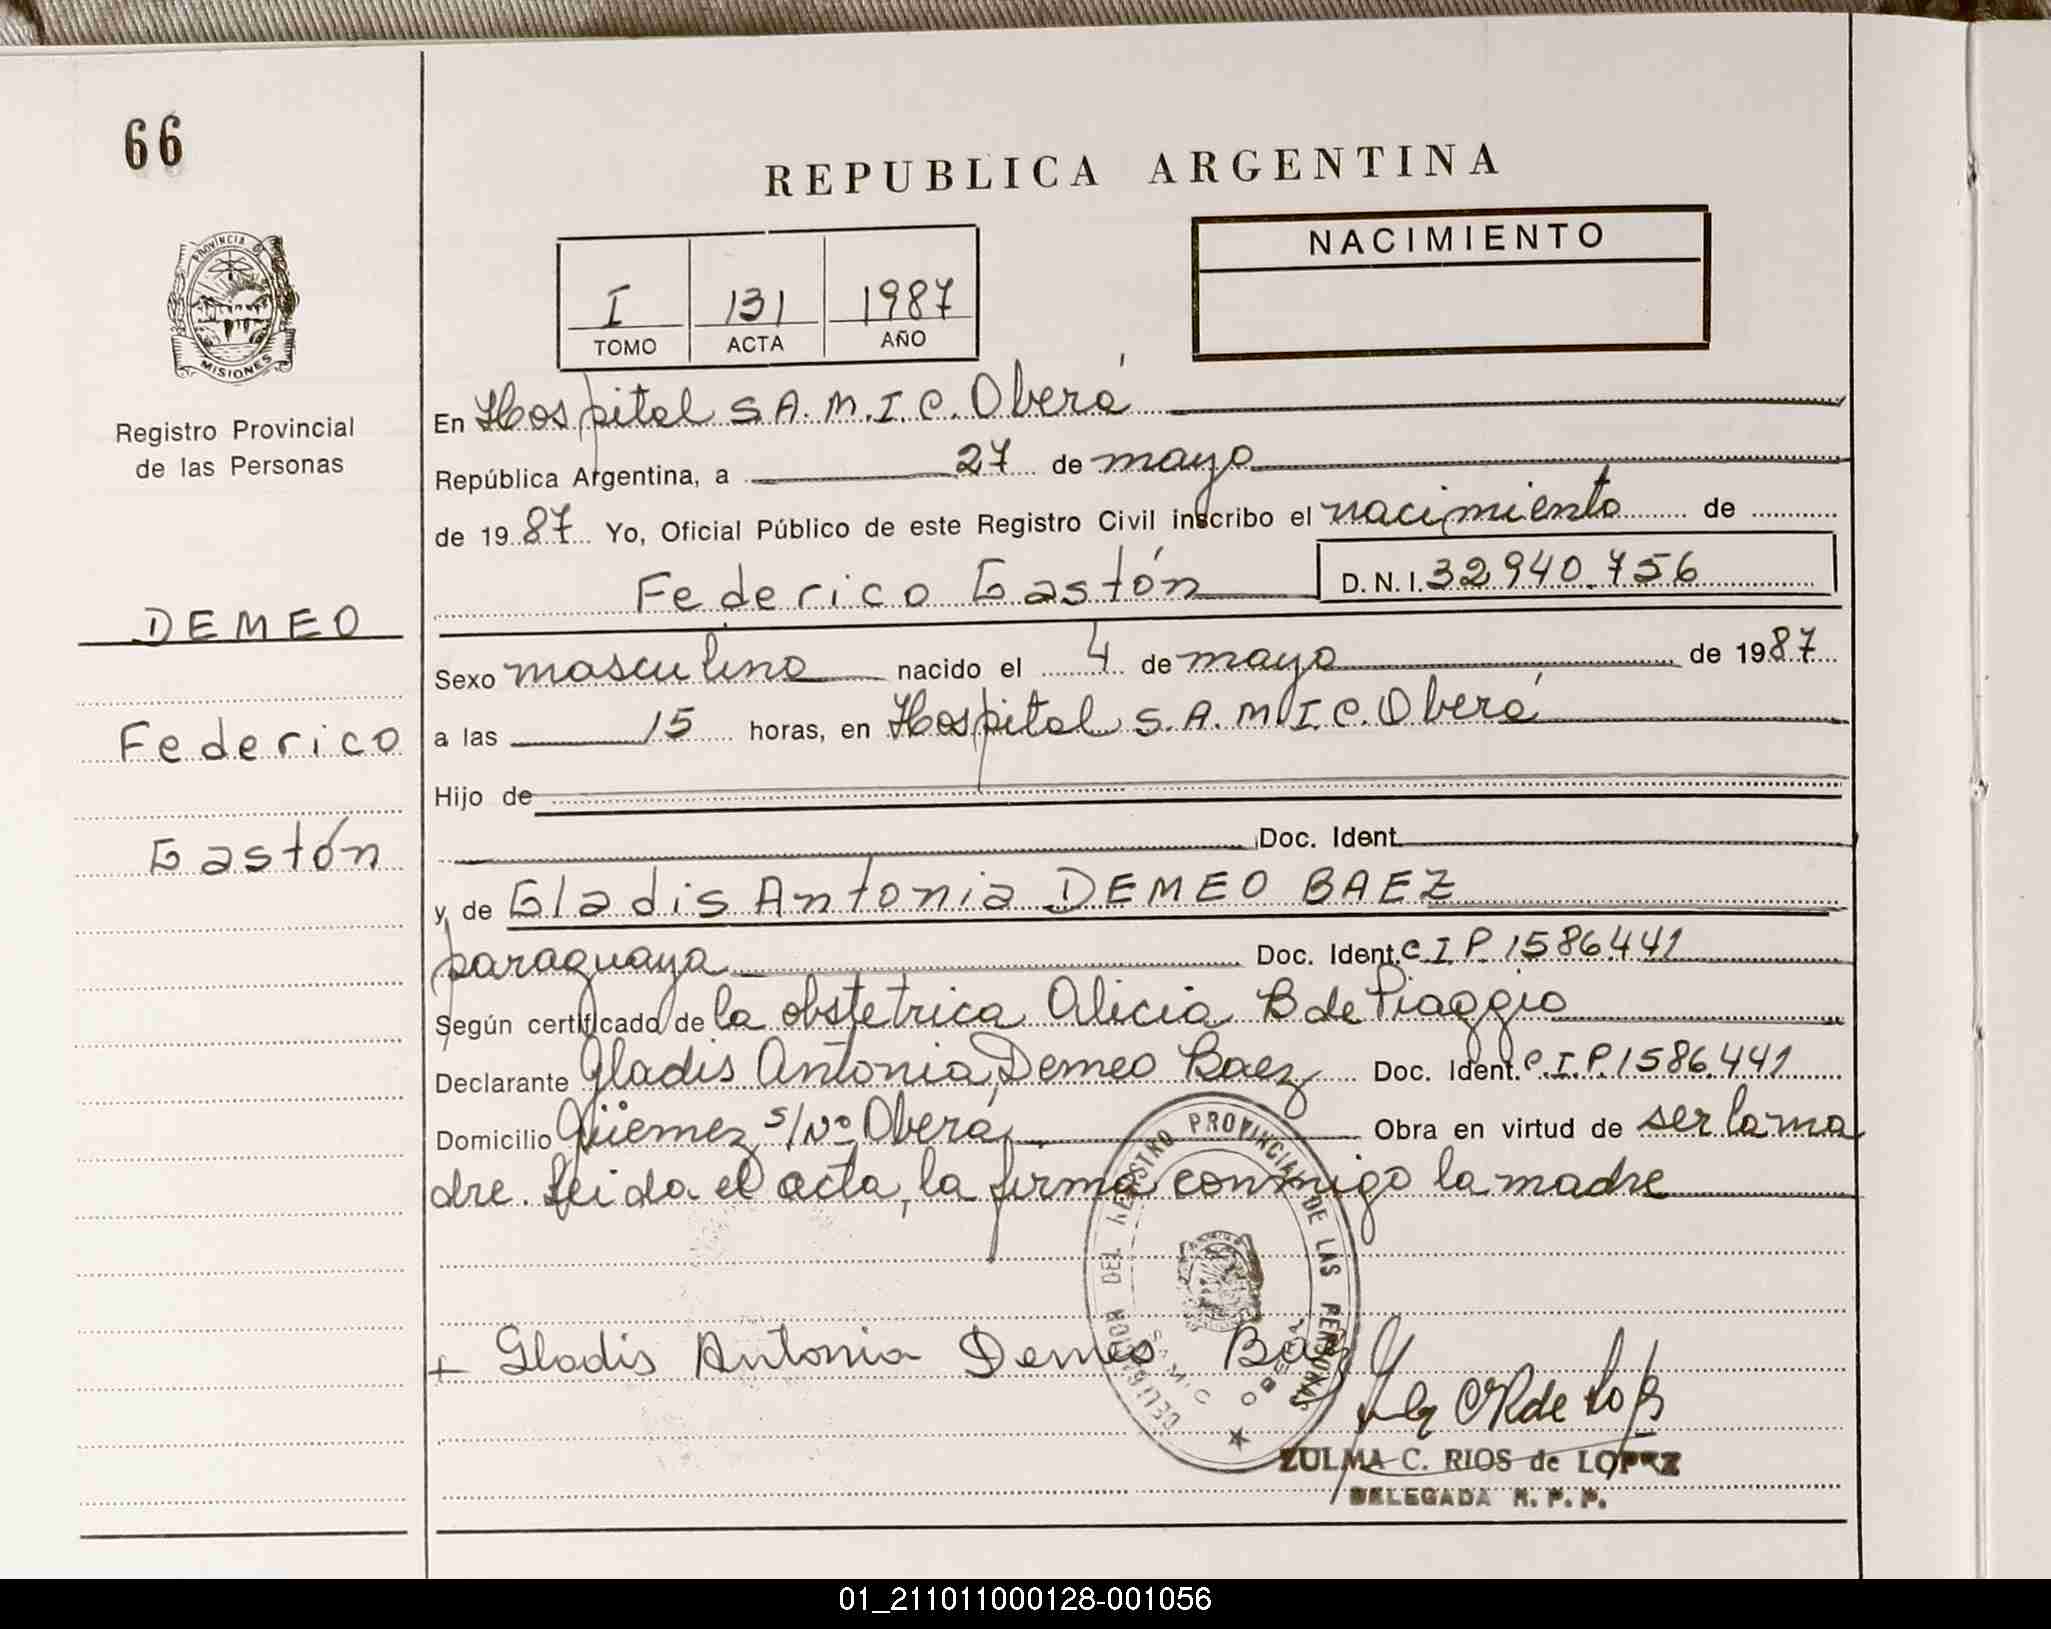 66
REPUBLICA ARGENTINA
PROVINCIA DE
MISIONES
Registro Provincial
de las Personas
DEMEO
Federico
Gastón
I 131 1987
TOMO ACTA AÑO
NACIMIENTO
En Hospital S.A.M.I.C. Oberá
República Argentina, a 27 de mayo
de 1987 Yo, Oficial Público de este Registro Civil inscribo el nacimiento de
Federico Gastón D.N.I. 32940.756
Sexo masculino nacido el 4 de mayo de 1987
a las 15 horas, en Hospital S.A.M.I.C. Oberá
Hijo de
Doc. Ident.
y de Gladis Antonia DEMEO BAEZ
paraguaya Doc. Ident. C.I.P. 1586.441
Según certificado de la obstetrica Alicia B de Piaggio
Declarante Gladis Antonia Demeo Baez Doc. Ident. C.I.P. 1586.441
Domicilio Güemez s/Nº Oberá Obra en virtud de ser la ma
dre. Leida el acta, la firma conmigo la madre
DELEGACION DEL REGISTRO PROVINCIAL DE LAS PERSONAS
+ Gladis Antonia Demeo Baez
ZULMA C. RIOS de LOPEZ
DELEGADA R. P. P.
01_211011000128-001056